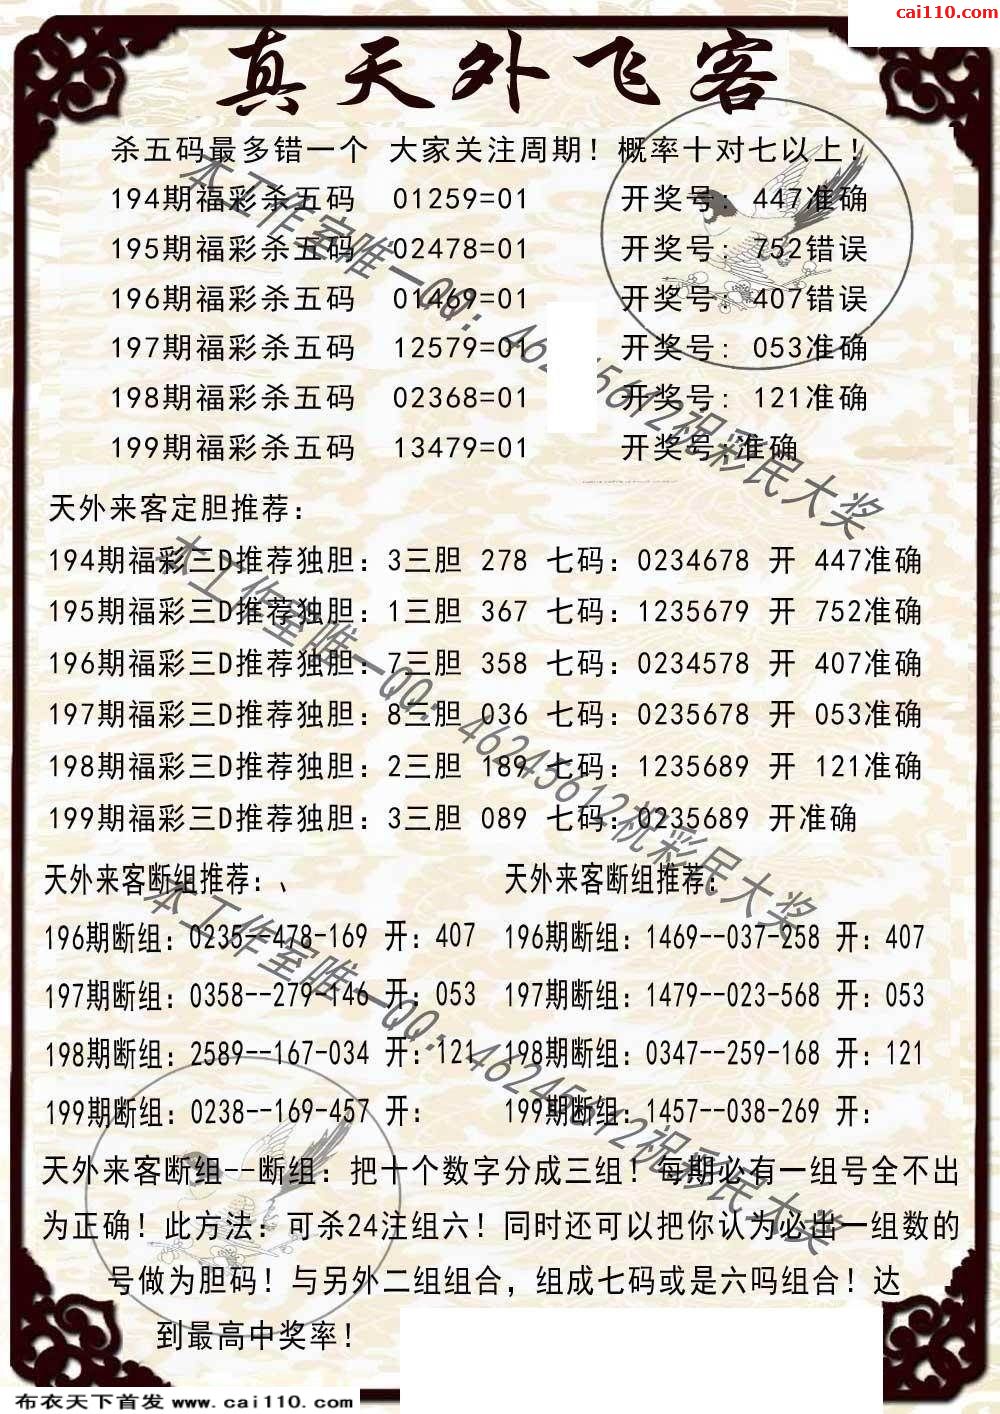 cai110.com
真天外飞客
杀五码最多错一个 大家关注周期！概率十对七以上！
194期福彩杀五码 01259=01 开奖号：447准确
195期福彩杀五码 02478=01 开奖号：752错误
196期福彩杀五码 01469=01 开奖号：407错误
197期福彩杀五码 12579=01 开奖号：053准确
198期福彩杀五码 02368=01 开奖号：121准确
199期福彩杀五码 13479=01 开奖号：准确
本工作室唯一QQ：46245612祝彩民大奖
天外来客定胆推荐：
194期福彩三D推荐独胆：3三胆 278 七码：0234678 开 447准确
195期福彩三D推荐独胆：1三胆 367 七码：1235679 开 752准确
196期福彩三D推荐独胆：7三胆 358 七码：0234578 开 407准确
197期福彩三D推荐独胆：8三胆 036 七码：0235678 开 053准确
198期福彩三D推荐独胆：2三胆 189 七码：1235689 开 121准确
199期福彩三D推荐独胆：3三胆 089 七码：0235689 开准确
本工作室唯一QQ：46245612祝彩民大奖
天外来客断组推荐：、 天外来客断组推荐：
196期断组：0235--478-169 开：407 196期断组：1469--037-258 开：407
197期断组：0358--279-146 开：053 197期断组：1479--023-568 开：053
198期断组：2589--167-034 开：121 198期断组：0347--259-168 开：121
199期断组：0238--169-457 开： 199期断组：1457--038-269 开：
本工作室唯一QQ：46245612祝彩民大奖
天外来客断组--断组：把十个数字分成三组！每期必有一组号全不出
为正确！此方法：可杀24注组六！同时还可以把你认为必出一组数的
号做为胆码！与另外二组组合，组成七码或是六吗组合！达
到最高中奖率！
布衣天下首发 www.cai110.com